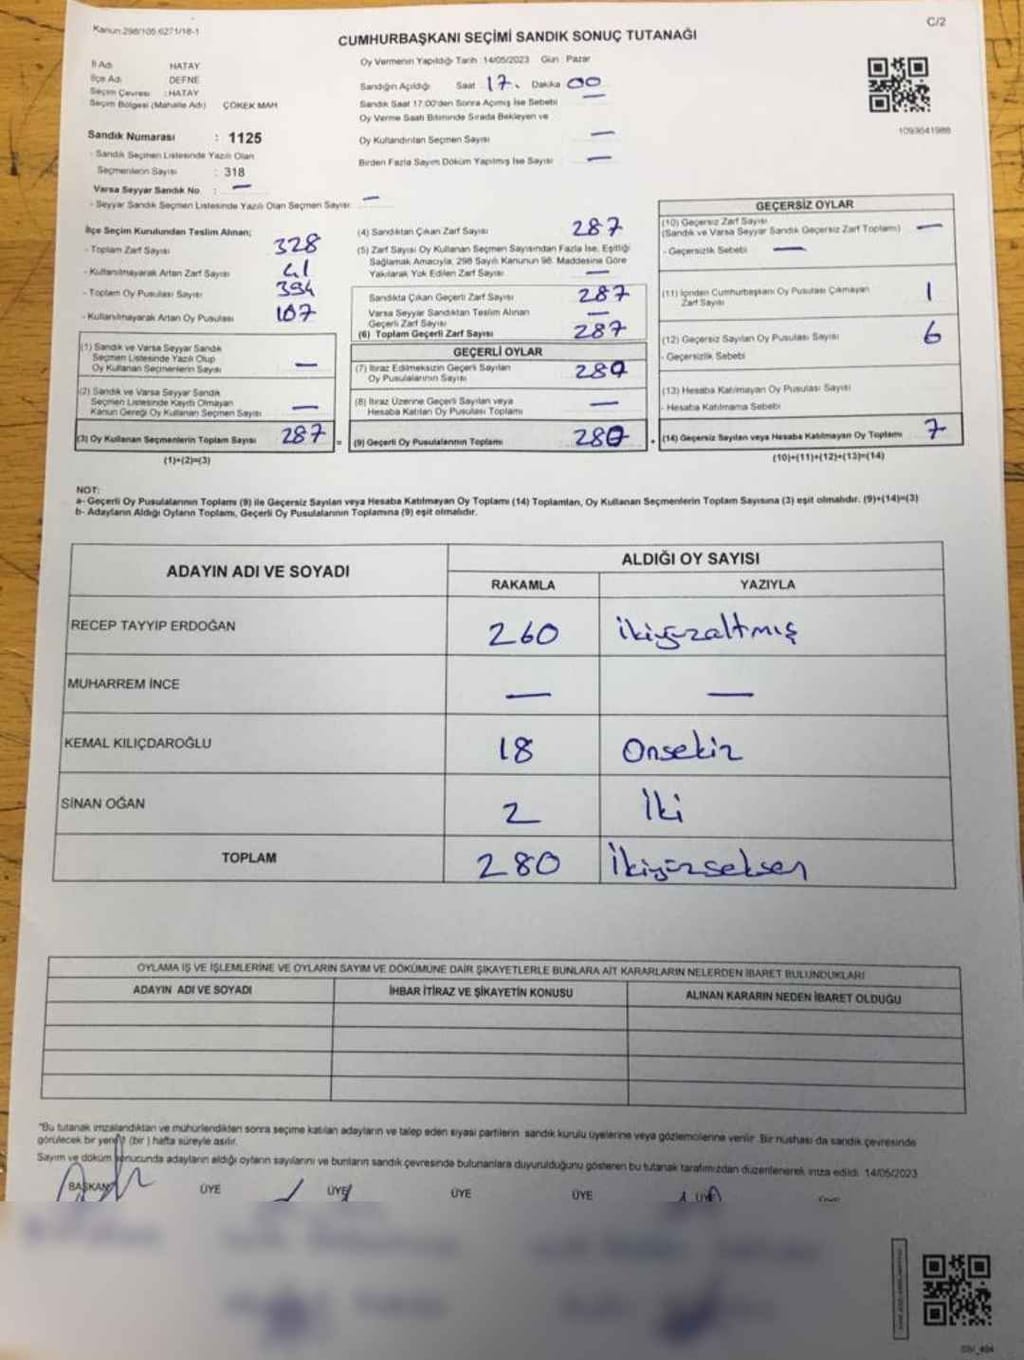 Kanun:298/105.6271/18-1
C/2
CUMHURBAŞKANI SEÇİMİ SANDIK SONUÇ TUTANAĞI
İl Adı HATAY
İlçe Adı DEFNE
Seçim Çevresi : HATAY
Seçim Bölgesi (Mahalle Adı) ÇÖKEK MAH
Sandık Numarası : 1125
- Sandık Seçmen Listesinde Yazılı Olan
Seçmenlerin Sayısı : 318
Varsa Seyyar Sandık No : —
- Seyyar Sandık Seçmen Listesinde Yazılı Olan Seçmen Sayısı: —
Oy Vermenin Yapıldığı Tarih 14/05/2023 Gün : Pazar
Sandığın Açıldığı Saat 17. Dakika 00
Sandık Saat 17:00'den Sonra Açılmış İse Sebebi —
Oy Verme Saati Bitiminde Sırada Bekleyen ve
Oy Kullandırılan Seçmen Sayısı —
Birden Fazla Sayım Döküm Yapılmış İse Sayısı —
1093641988
İlçe Seçim Kurulundan Teslim Alınan;
- Toplam Zarf Sayısı 328
- Kullanılmayarak Artan Zarf Sayısı 41
- Toplam Oy Pusulası Sayısı 394
- Kullanılmayarak Artan Oy Pusulası 107
(1) Sandık ve Varsa Seyyar Sandık
Seçmen Listesinde Yazılı Olup
Oy Kullanan Seçmenlerin Sayısı —
(2) Sandık ve Varsa Seyyar Sandık
Seçmen Listesinde Kayıtlı Olmayan
Kanun Gereği Oy Kullanan Seçmen Sayısı —
(3) Oy Kullanan Seçmenlerin Toplam Sayısı 287 =
(1)+(2)=(3)
(4) Sandıktan Çıkan Zarf Sayısı 287
(5) Zarf Sayısı Oy Kullanan Seçmen Sayısından Fazla İse, Eşitliği
Sağlamak Amacıyla, 298 Sayılı Kanunun 98. Maddesine Göre
Yakılarak Yok Edilen Zarf Sayısı —
Sandıkta Çıkan Geçerli Zarf Sayısı 287
Varsa Seyyar Sandıktan Teslim Alınan
Geçerli Zarf Sayısı —
(6) Toplam Geçerli Zarf Sayısı 287
GEÇERLİ OYLAR
(7) İtiraz Edilmeksizin Geçerli Sayılan
Oy Pusulalarının Sayısı 280
(8) İtiraz Üzerine Geçerli Sayılan veya
Hesaba Katılan Oy Pusulası Toplamı —
(9) Geçerli Oy Pusulalarının Toplamı 280 +
GEÇERSİZ OYLAR
(10) Geçersiz Zarf Sayısı
(Sandık ve Varsa Seyyar Sandık Geçersiz Zarf Toplamı) —
- Geçersizlik Sebebi —
(11) İçinden Cumhurbaşkanı Oy Pusulası Çıkmayan
Zarf Sayısı 1
(12) Geçersiz Sayılan Oy Pusulası Sayısı 6
- Geçersizlik Sebebi
(13) Hesaba Katılmayan Oy Pusulası Sayısı
- Hesaba Katılmama Sebebi
(14) Geçersiz Sayılan veya Hesaba Katılmayan Oy Toplamı 7
(10)+(11)+(12)+(13)=(14)
NOT:
a- Geçerli Oy Pusulalarının Toplamı (9) ile Geçersiz Sayılan veya Hesaba Katılmayan Oy Toplamı (14) Toplamları, Oy Kullanan Seçmenlerin Toplam Sayısına (3) eşit olmalıdır. (9)+(14)=(3)
b- Adayların Aldığı Oyların Toplamı, Geçerli Oy Pusulalarının Toplamına (9) eşit olmalıdır.
ADAYIN ADI VE SOYADI ALDIĞI OY SAYISI
RAKAMLA YAZIYLA
RECEP TAYYİP ERDOĞAN 260 ikiyüzaltmış
MUHARREM İNCE — —
KEMAL KILIÇDAROĞLU 18 Onsekiz
SİNAN OĞAN 2 İki
TOPLAM 280 İkiyüzseksen
OYLAMA İŞ VE İŞLEMLERİNE VE OYLARIN SAYIM VE DÖKÜMÜNE DAİR ŞİKAYETLERLE BUNLARA AİT KARARLARIN NELERDEN İBARET BULUNDUKLARI
ADAYIN ADI VE SOYADI İHBAR İTİRAZ VE ŞİKAYETİN KONUSU ALINAN KARARIN NEDEN İBARET OLDUĞU
"Bu tutanak imzalandıktan ve mühürlendikten sonra seçime katılan adayların ve talep eden siyasi partilerin sandık kurulu üyelerine veya gözlemcilerine verilir. Bir nüshası da sandık çevresinde
görülecek bir yere (bir) hafta süreyle asılır.
Sayım ve döküm sonucunda adayların aldığı oyların sayılarını ve bunların sandık çevresinde bulunanlara duyurulduğunu gösteren bu tutanak tarafımızdan düzenlenerek imza edildi. 14/05/2023
BAŞKAN ÜYE ÜYE ÜYE ÜYE ÜYE